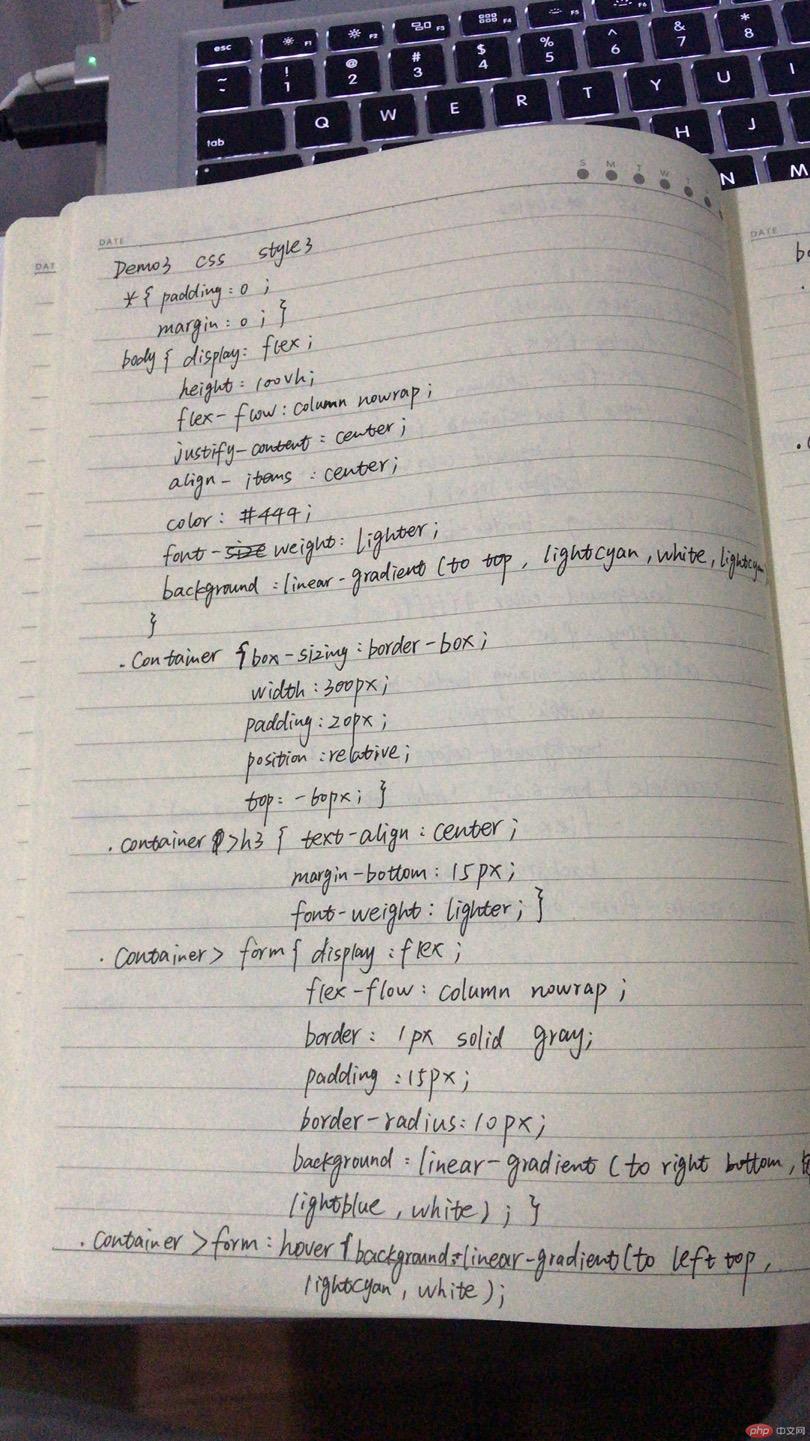 esc F1 F2 F3 F4 F5 F6
~ ! 1 @ 2 # 3 $ 4 % 5 ^ 6 & 7 * 8
tab Q W E R T Y U I
H J
N M
S M T W T
DATE
DAT
DATE
Demo3 css style3
*{ padding: 0 ;
margin: 0 ; }
body{ display: flex;
height: 100vh;
flex-flow: column nowrap;
justify-content: center;
align-items : center;
color: #444;
font-size weight: lighter;
background :linear-gradient (to top, lightcyan, white, lightcyan
}
.container {box-sizing: border-box;
width: 300px;
padding: 20px;
position :relative;
top: -60px; }
.container >h3 { text-align: center;
margin-bottom: 15px;
font-weight: lighter; }
.container> form{ display :flex ;
flex-flow: column nowrap ;
border: 1px solid gray;
padding :15px;
border-radius: 10px;
background: linear-gradient (to right bottom,
lightblue, white) ; }
.container >form: hover {background:linear-gradient(to left top,
lightcyan, white);
php 中文网